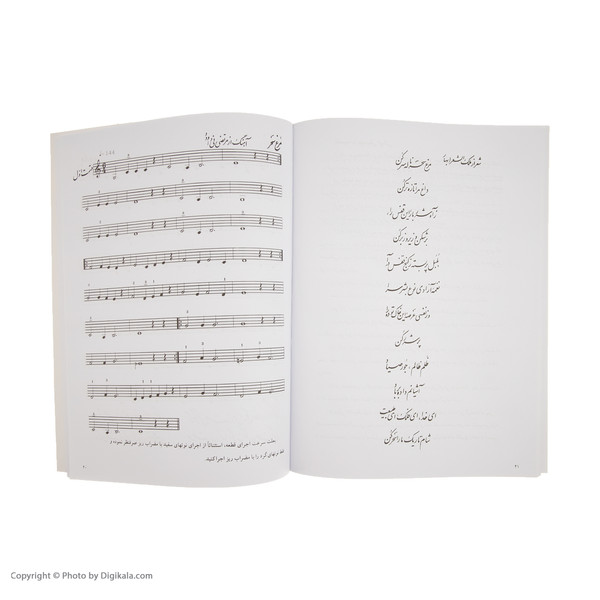 شعر از ملک الشعراء بهار
مرغ سحر ناله سر کن
داغ مرا تازه تر کن
ز آه شرر بار این قفس را
برشکن و زیر و زبر کن
بلبل پر بسته ز کنج قفس درآ
نغمه آزادی نوع بشر سرا
وز نفسی عرصه این خاک توده را
پر شرر کن
ظلم ظالم، جور صیاد
آشیانم داده بر باد
ای خدا، ای فلک، ای طبیعت
شام تاریک ما را سحر کن
مرغ سحر
آهنگ از مرتضی نی داود
قسمت اول
بعلت سرعت اجرای قطعه، استثنائاً از اجرای نوتهای سفید با مضراب ریز صرفنظر نموده و
فقط نوتهای گرد را با مضراب ریز اجرا کنید.
Copyright © Photo by Digikala.com